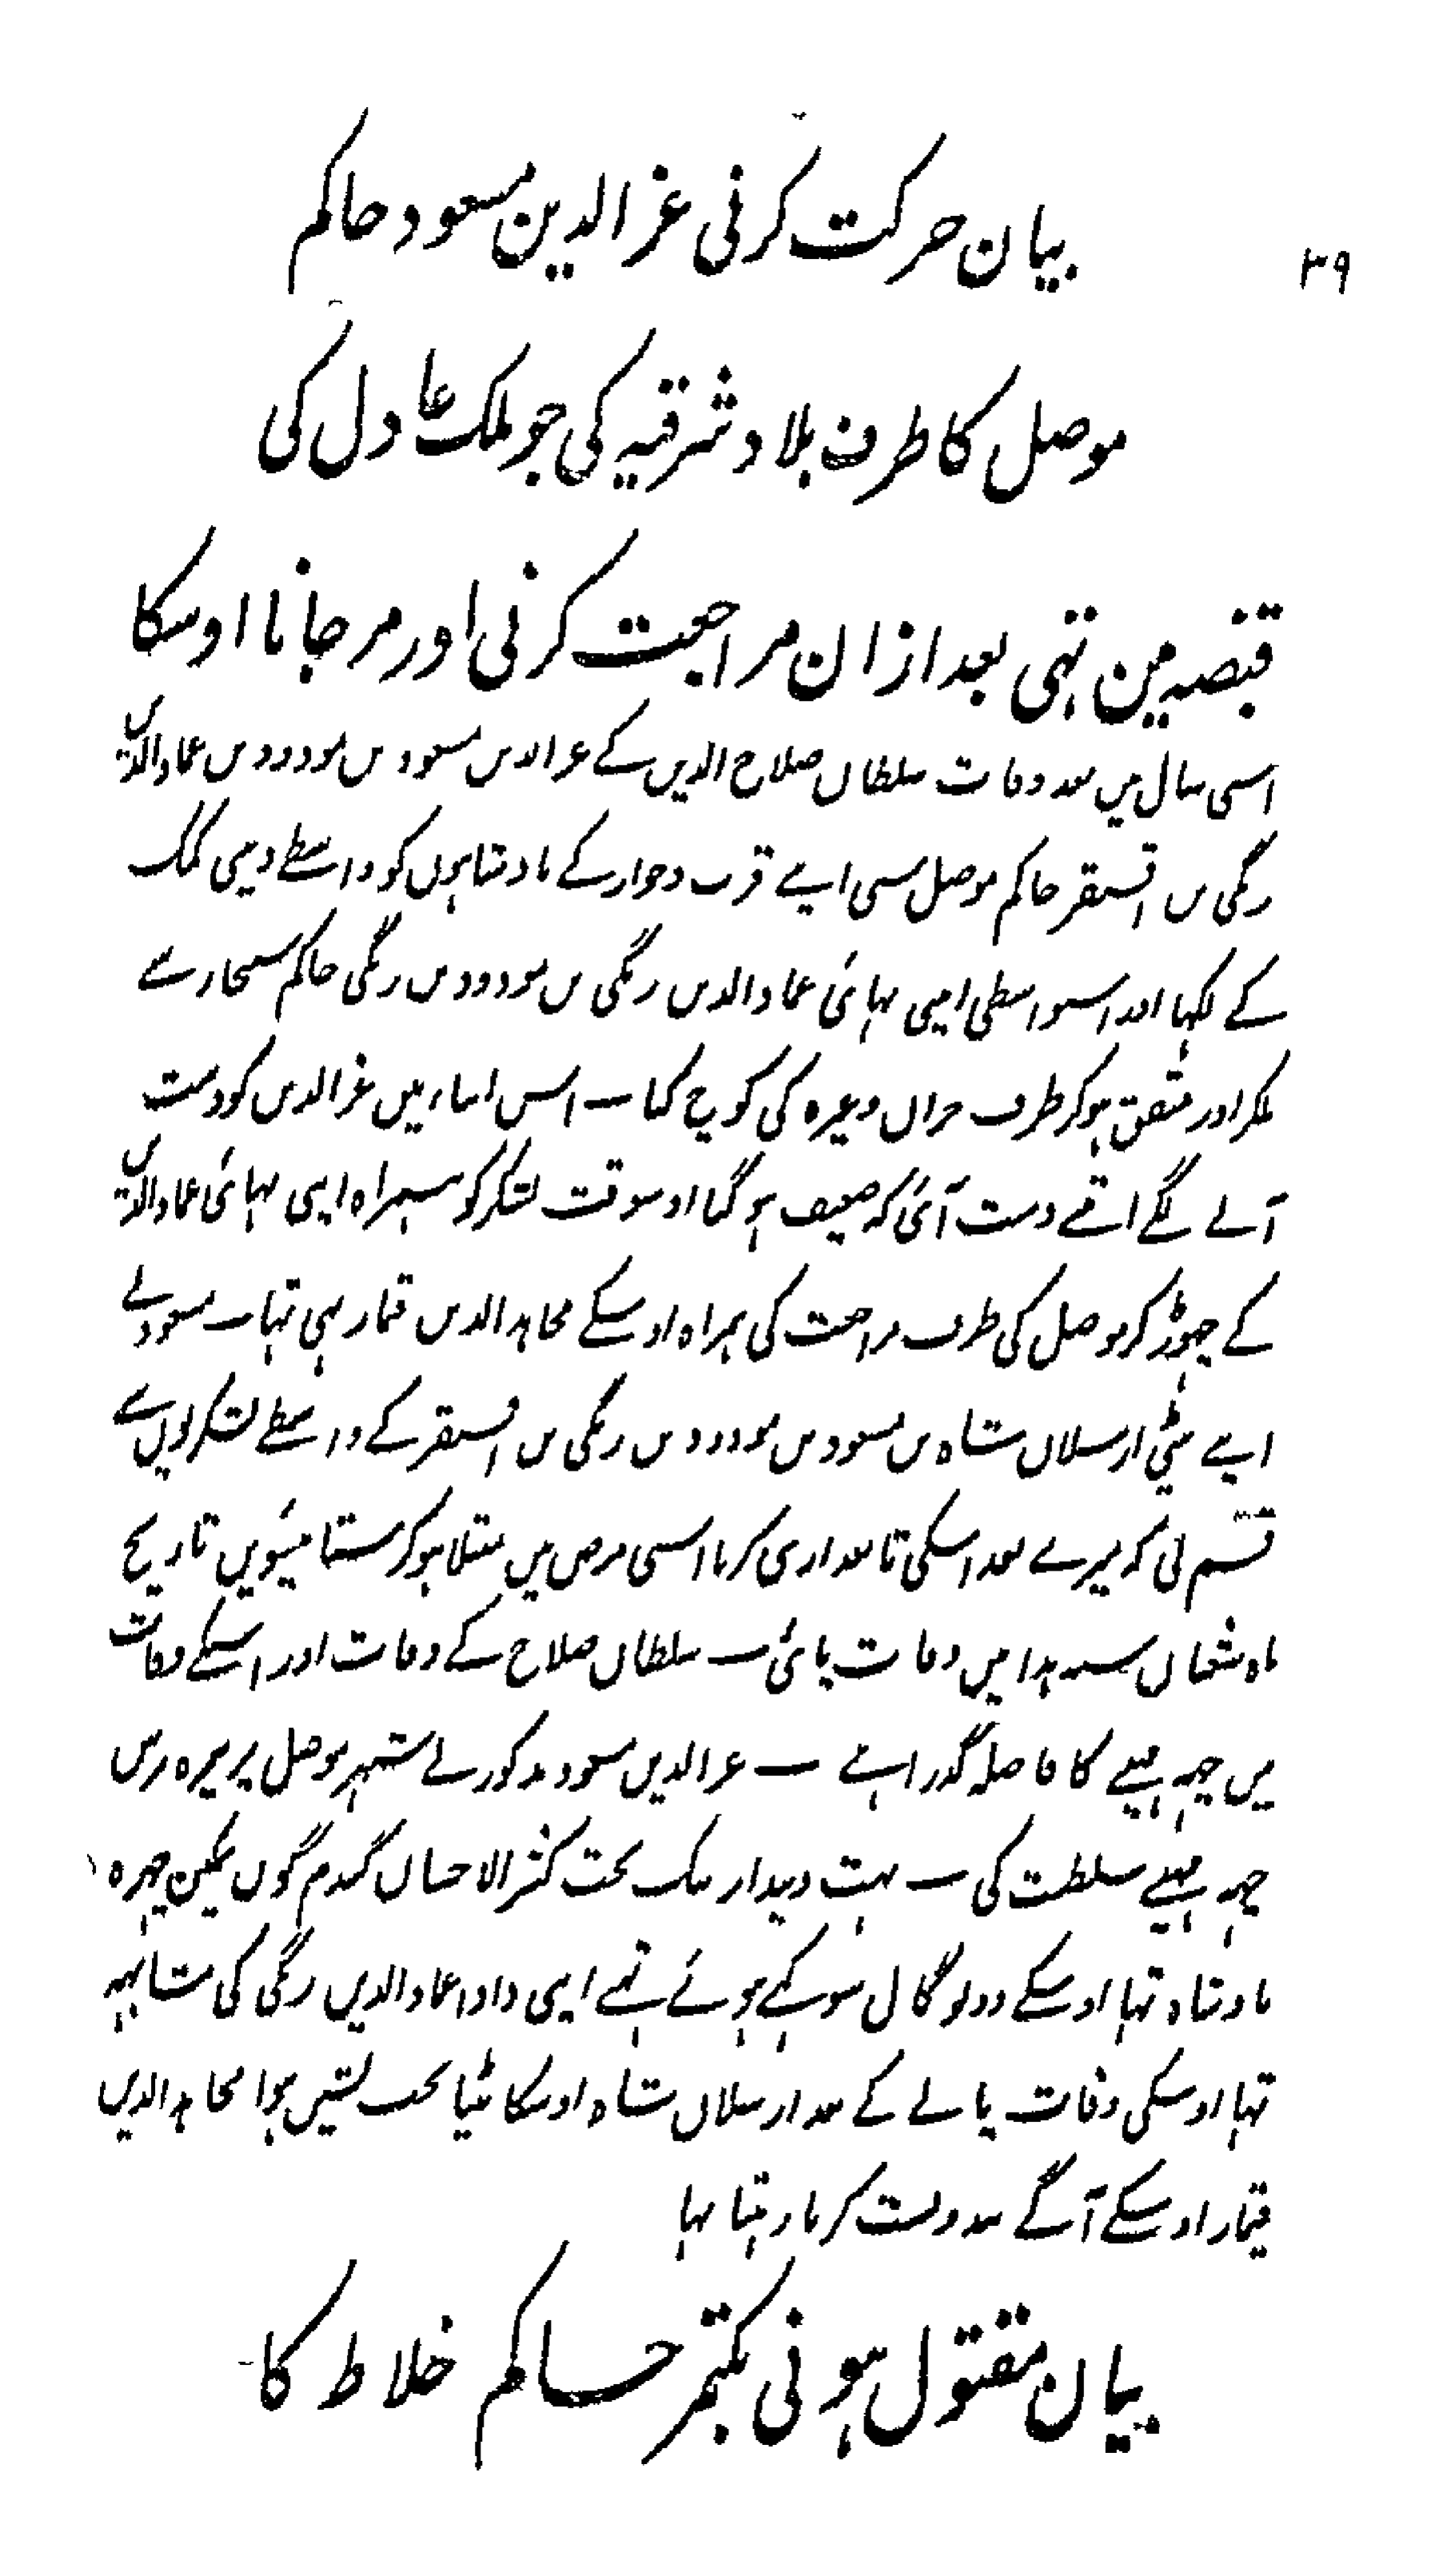 ۳۹
بیان حرکت کرنی عز الدین مسعود حاکم
موصل کا طرف بلاد شرقیہ کی جو ملک عادل کی
قبضہ مین تہی بعد ازان مراجعت کرنی اور مر جانا اوسکا
اسی سال میں بعد وفات سلطان صلاح الدین کے عز الدین مسعود بن مودود بن عماد الدین
زنگی بن اقسنقر حاکم موصل نی اپنے قرب و جوار کے بادشاہوں کو واسطے دینی کمک
کے لکہا اور اسواسطی اپنی بہائی عماد الدین زنگی بن مودود بن زنگی حاکم سنجار سے
ملکر اور متفق ہو کر طرف حران وغیرہ کی کوچ کیا ــ اس اثناء میں عز الدین کو دست
آنے لگے اتنے دست آئی کہ ضعیف ہو گیا اوسوقت لشکر کو ہمراہ اپنی بہائی عماد الدین
کے چہوڑ کر موصل کی طرف مراجعت کی ہمراہ اوسکے مجاہد الدین قیماز بہی تہا ــ مسعود نے
اپنے بیٹی ارسلان شاہ بن مسعود بن مودود بن زنگی بن اقسنقر کے واسطے لشکریوں سے
قسم لی کہ میرے بعد اسکی تابعداری کرنا اسی مرض میں مبتلا ہو کر ستائیسویں تاریخ
ماہ شعبان سنہ ہذا میں وفات پائی ــ سلطان صلاح کے وفات اور اسکے وفات
میں چہہ مہینے کا فاصلہ گذرا ہے ــ عز الدین مسعود مذکور نے شہر موصل پر تیرہ برس
چہہ مہینے سلطنت کی ــ بہت دیندار نیک بخت کثیر الاحسان گندم گوں نمکین چہرہ
بادشاہ تہا اوسکے دونو گال سوکہے ہوئے تہے اپنی دادا عماد الدین زنگی کی مشابہہ
تہا اوسکی وفات پانے کے بعد ارسلان شاہ اوسکا بیٹا تخت نشیں ہوا مجاہد الدین
قیماز اوسکے آگے بندوبست کرتا رہتا تہا
بیان مقتول ہونی بکتمر حاکم خلاط کا